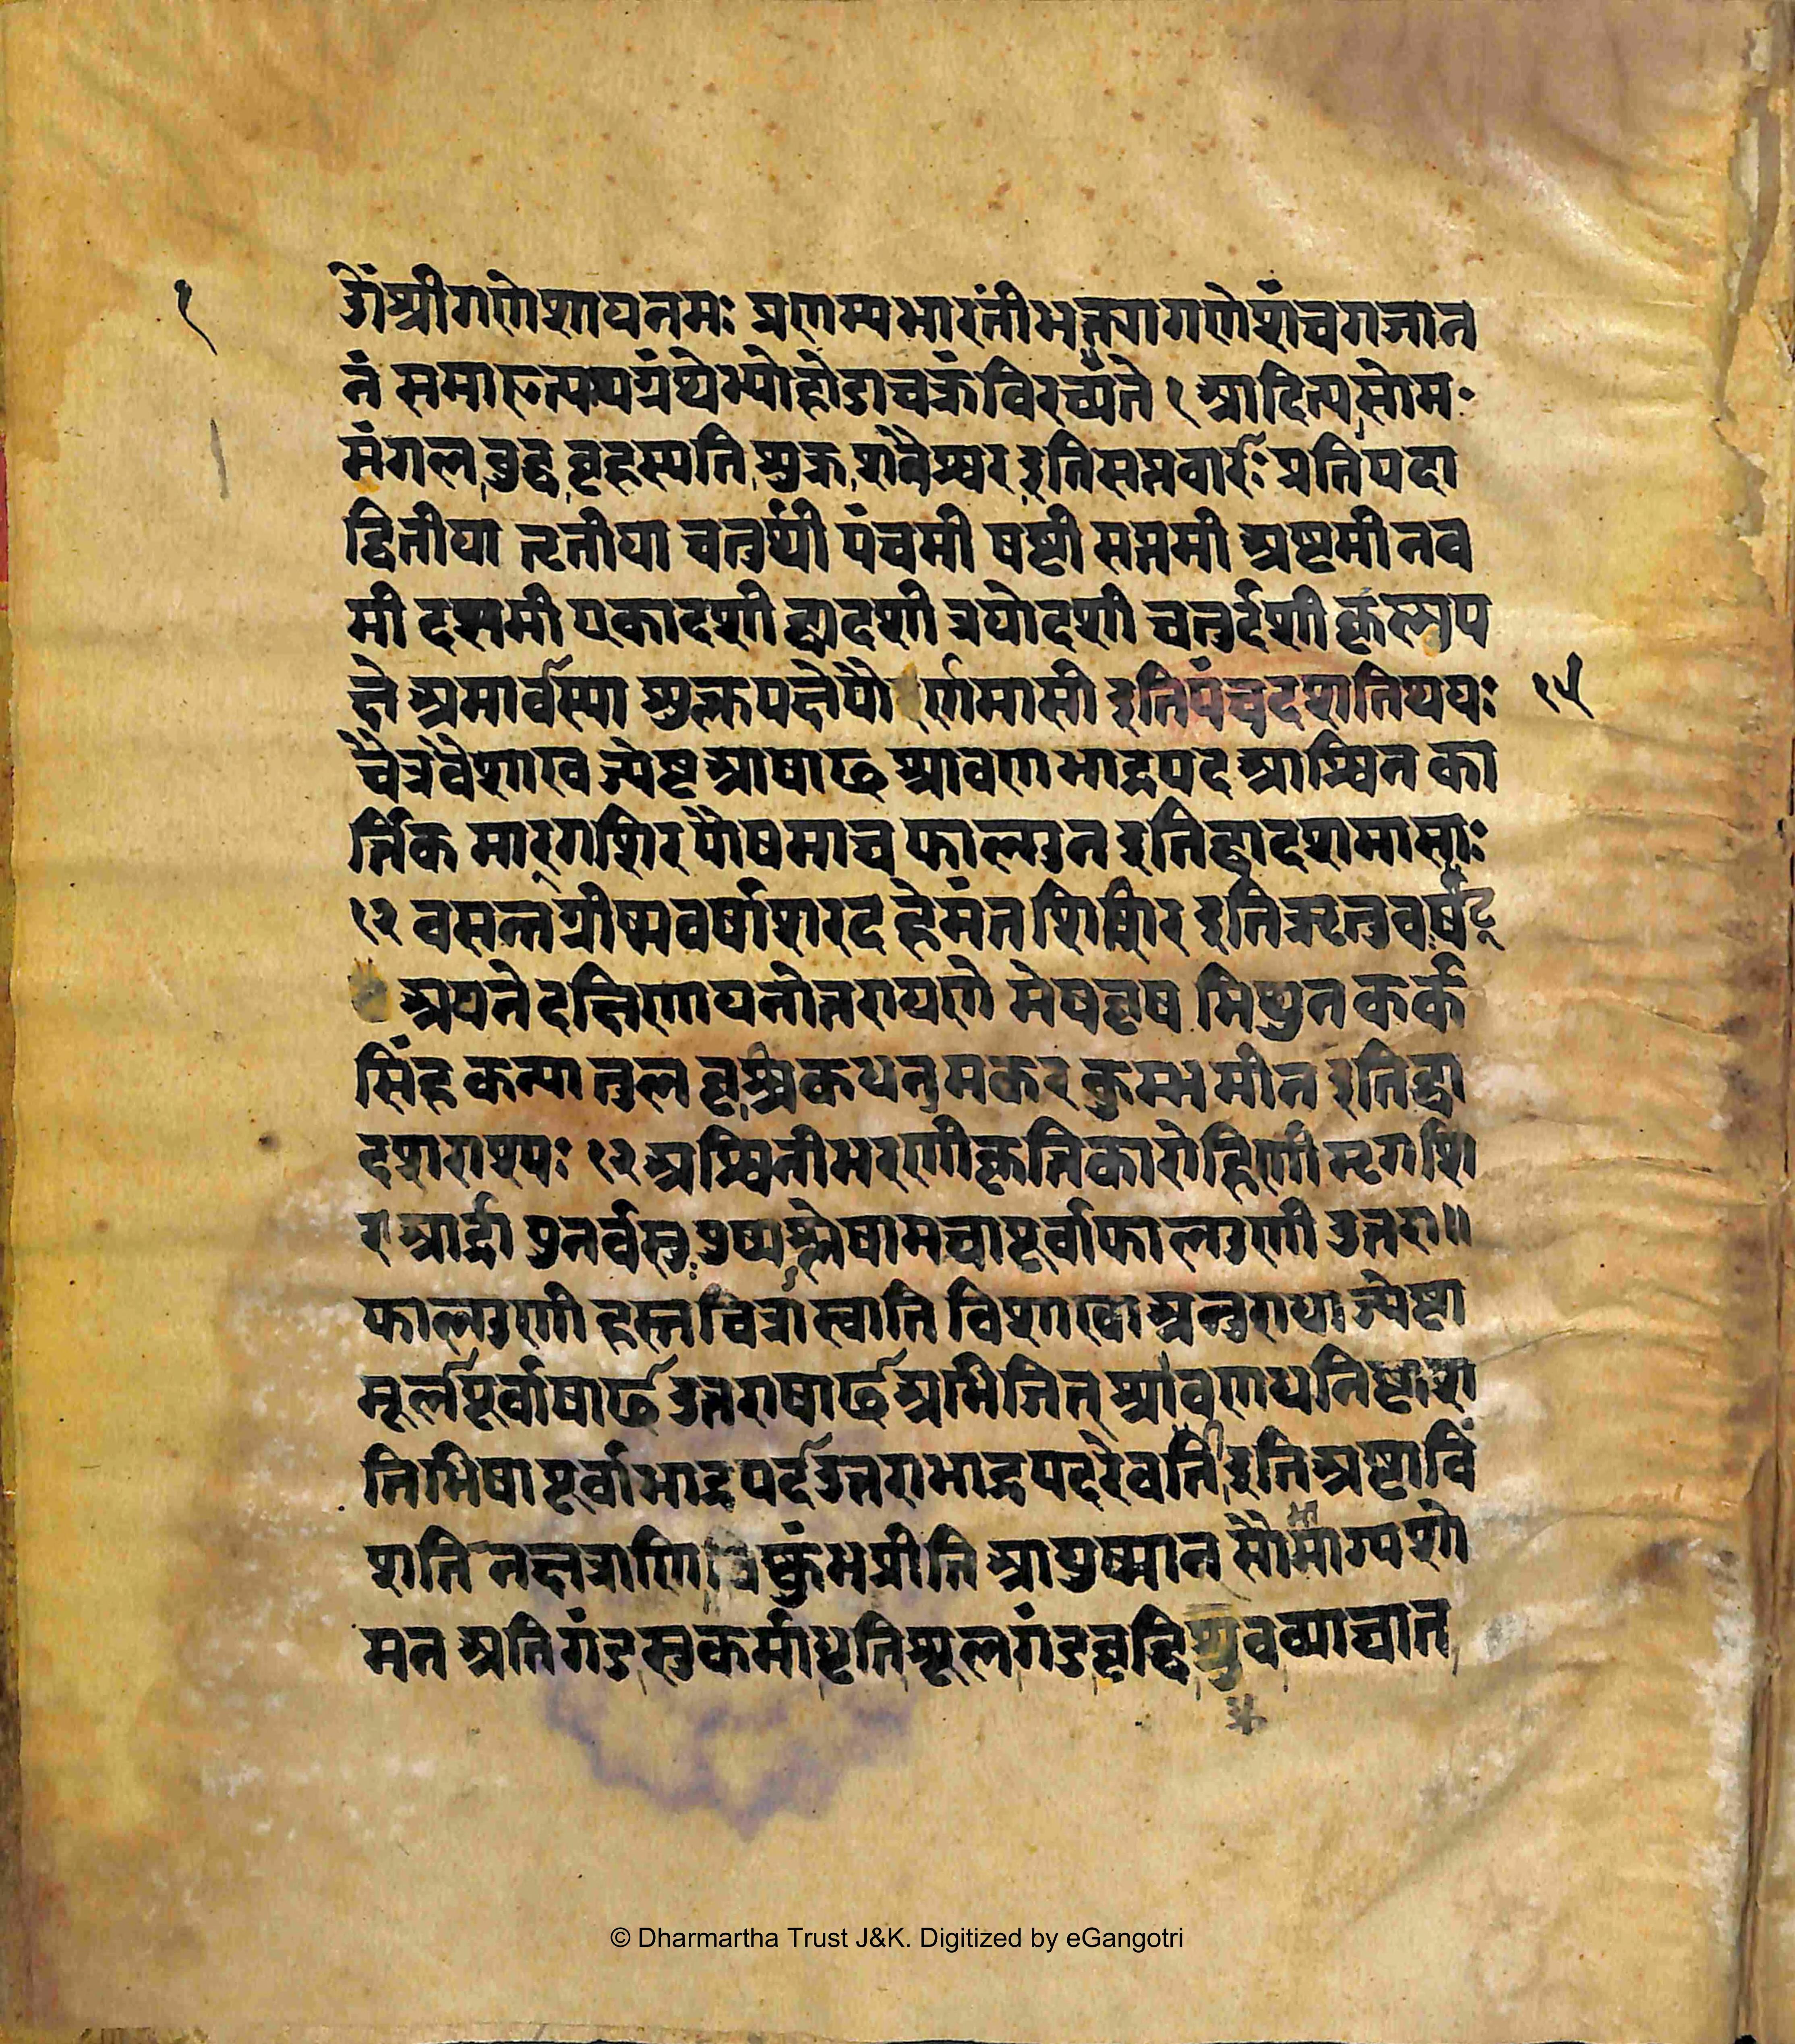 १
ॐश्रीगणेशायनमः प्रणम्यभारतींभक्त्यागणेशंचगजान
नं समाहृत्यान्यग्रंथेभ्योहोडाचक्रंविरच्यते १ आदित्यसोम
मंगल बुद्ध बृहस्पति शुक्र शनैश्चर इतिसप्तवारः प्रतिपदा
द्वितीया तृतीया चतुर्थी पंचमी षष्टी सप्तमी अष्टमी नव
मी दसमी एकादशी द्वादशी त्रयोदशी चतुर्दशी कृष्णप
क्षे अमावस्या शुक्लपक्षेपौर्णमासी इतिपंचदशतिथयः १५
चैत्रवैशाख ज्येष्ट आषाढ श्रावण भाद्रपद आश्विन का
र्तिक मार्गशिर पौषमाघ फाल्गुन इतिद्वादशमासाः
१२ वसन्तग्रीष्मवर्षाशरद हेमंत शिशिर इतिऋतुवर्षट्
अयने दक्षिणायनोत्तरायणे मेषवृष मिथुन कर्क
सिंह कन्या तुल वृश्चिकधनमकर कुम्भमीन इतिद्वा
दशराशयः १२ अश्विनीभरणीकृतिकारोहिणी मृगशि
र आर्द्रा पुनर्वसु पुष्यश्लेषामघापूर्वाफाल्गुणी उत्तरा॥
फाल्गुणी हस्तचित्रा स्वाति विशाखा अनुराधा ज्येष्टा
मूलपूर्वाषाढ उत्तराषाढ अभिजित् श्रावणधनिष्टाश
तिभिषा पूर्वाभाद्रपद उत्तराभाद्रपदरेवति इतिअष्टाविं
शति नक्षत्राणि विष्कुंभप्रीति आयुष्मान सौभाग्यशो
भन अतिगंडसुकर्माधृतिशूलगंडवृद्धिध्रुवव्याघात
© Dharmartha Trust J&K. Digitized by eGangotri